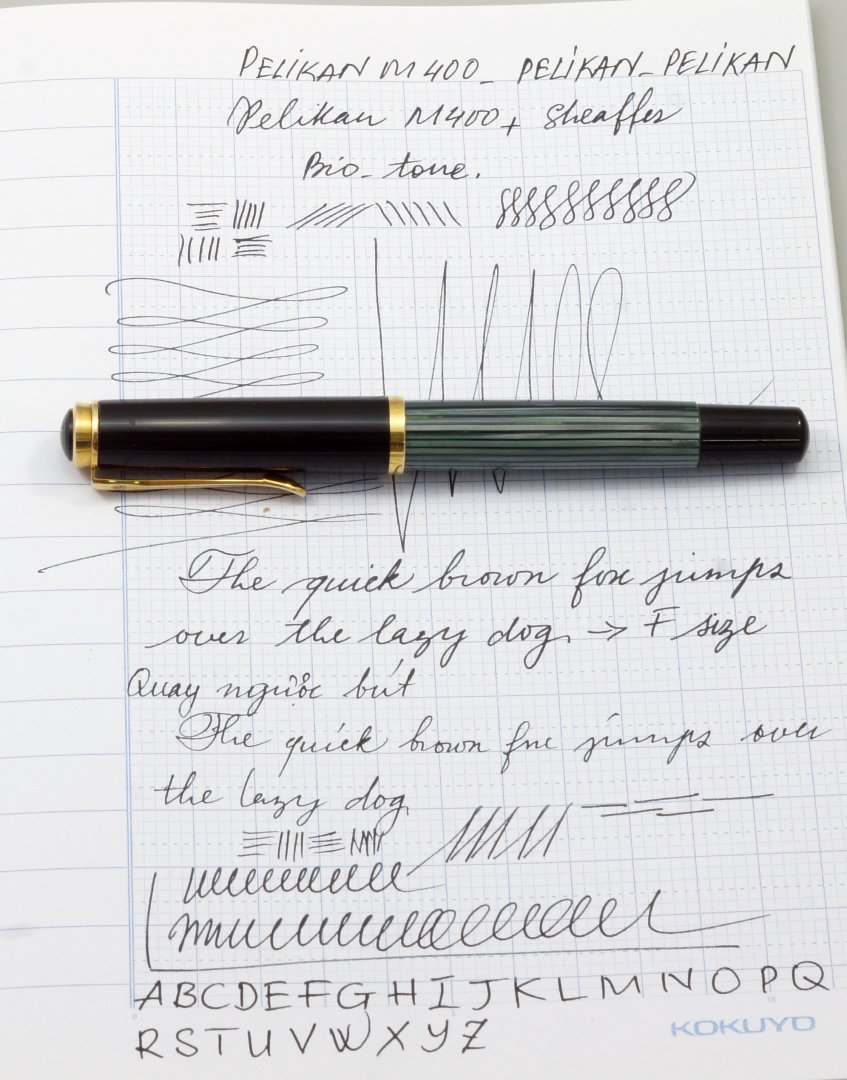 PELIKAN M400_ PELIKAN_PELIKAN
Pelikan M400 + Sheaffer
Bio_tone.
The quick brown fox jumps
over the lazy dog → F size
Quay ngược bút
The quick brown fox jumps over
the lazy dog
ABCDEFGHIJKLMNOPQ
RSTUVWXYZ
KOKUYO